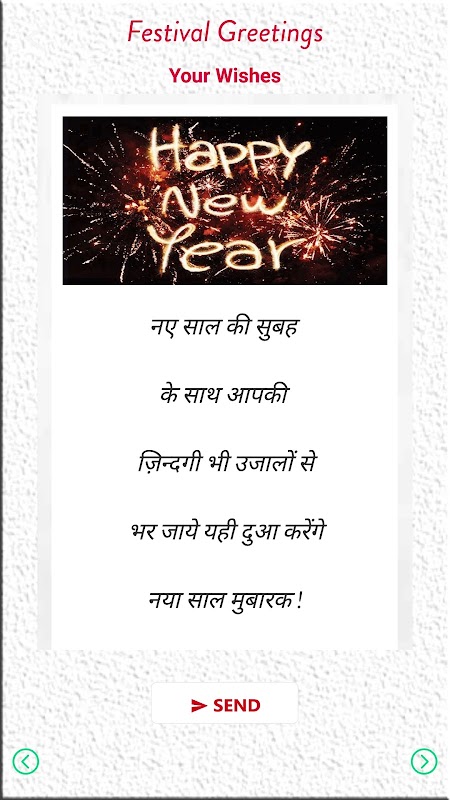 Festival Greetings
Your Wishes
Happy
New
Year
नए साल की सुबह
के साथ आपकी
ज़िन्दगी भी उजालों से
भर जाये यही दुआ करेंगे
नया साल मुबारक !
SEND